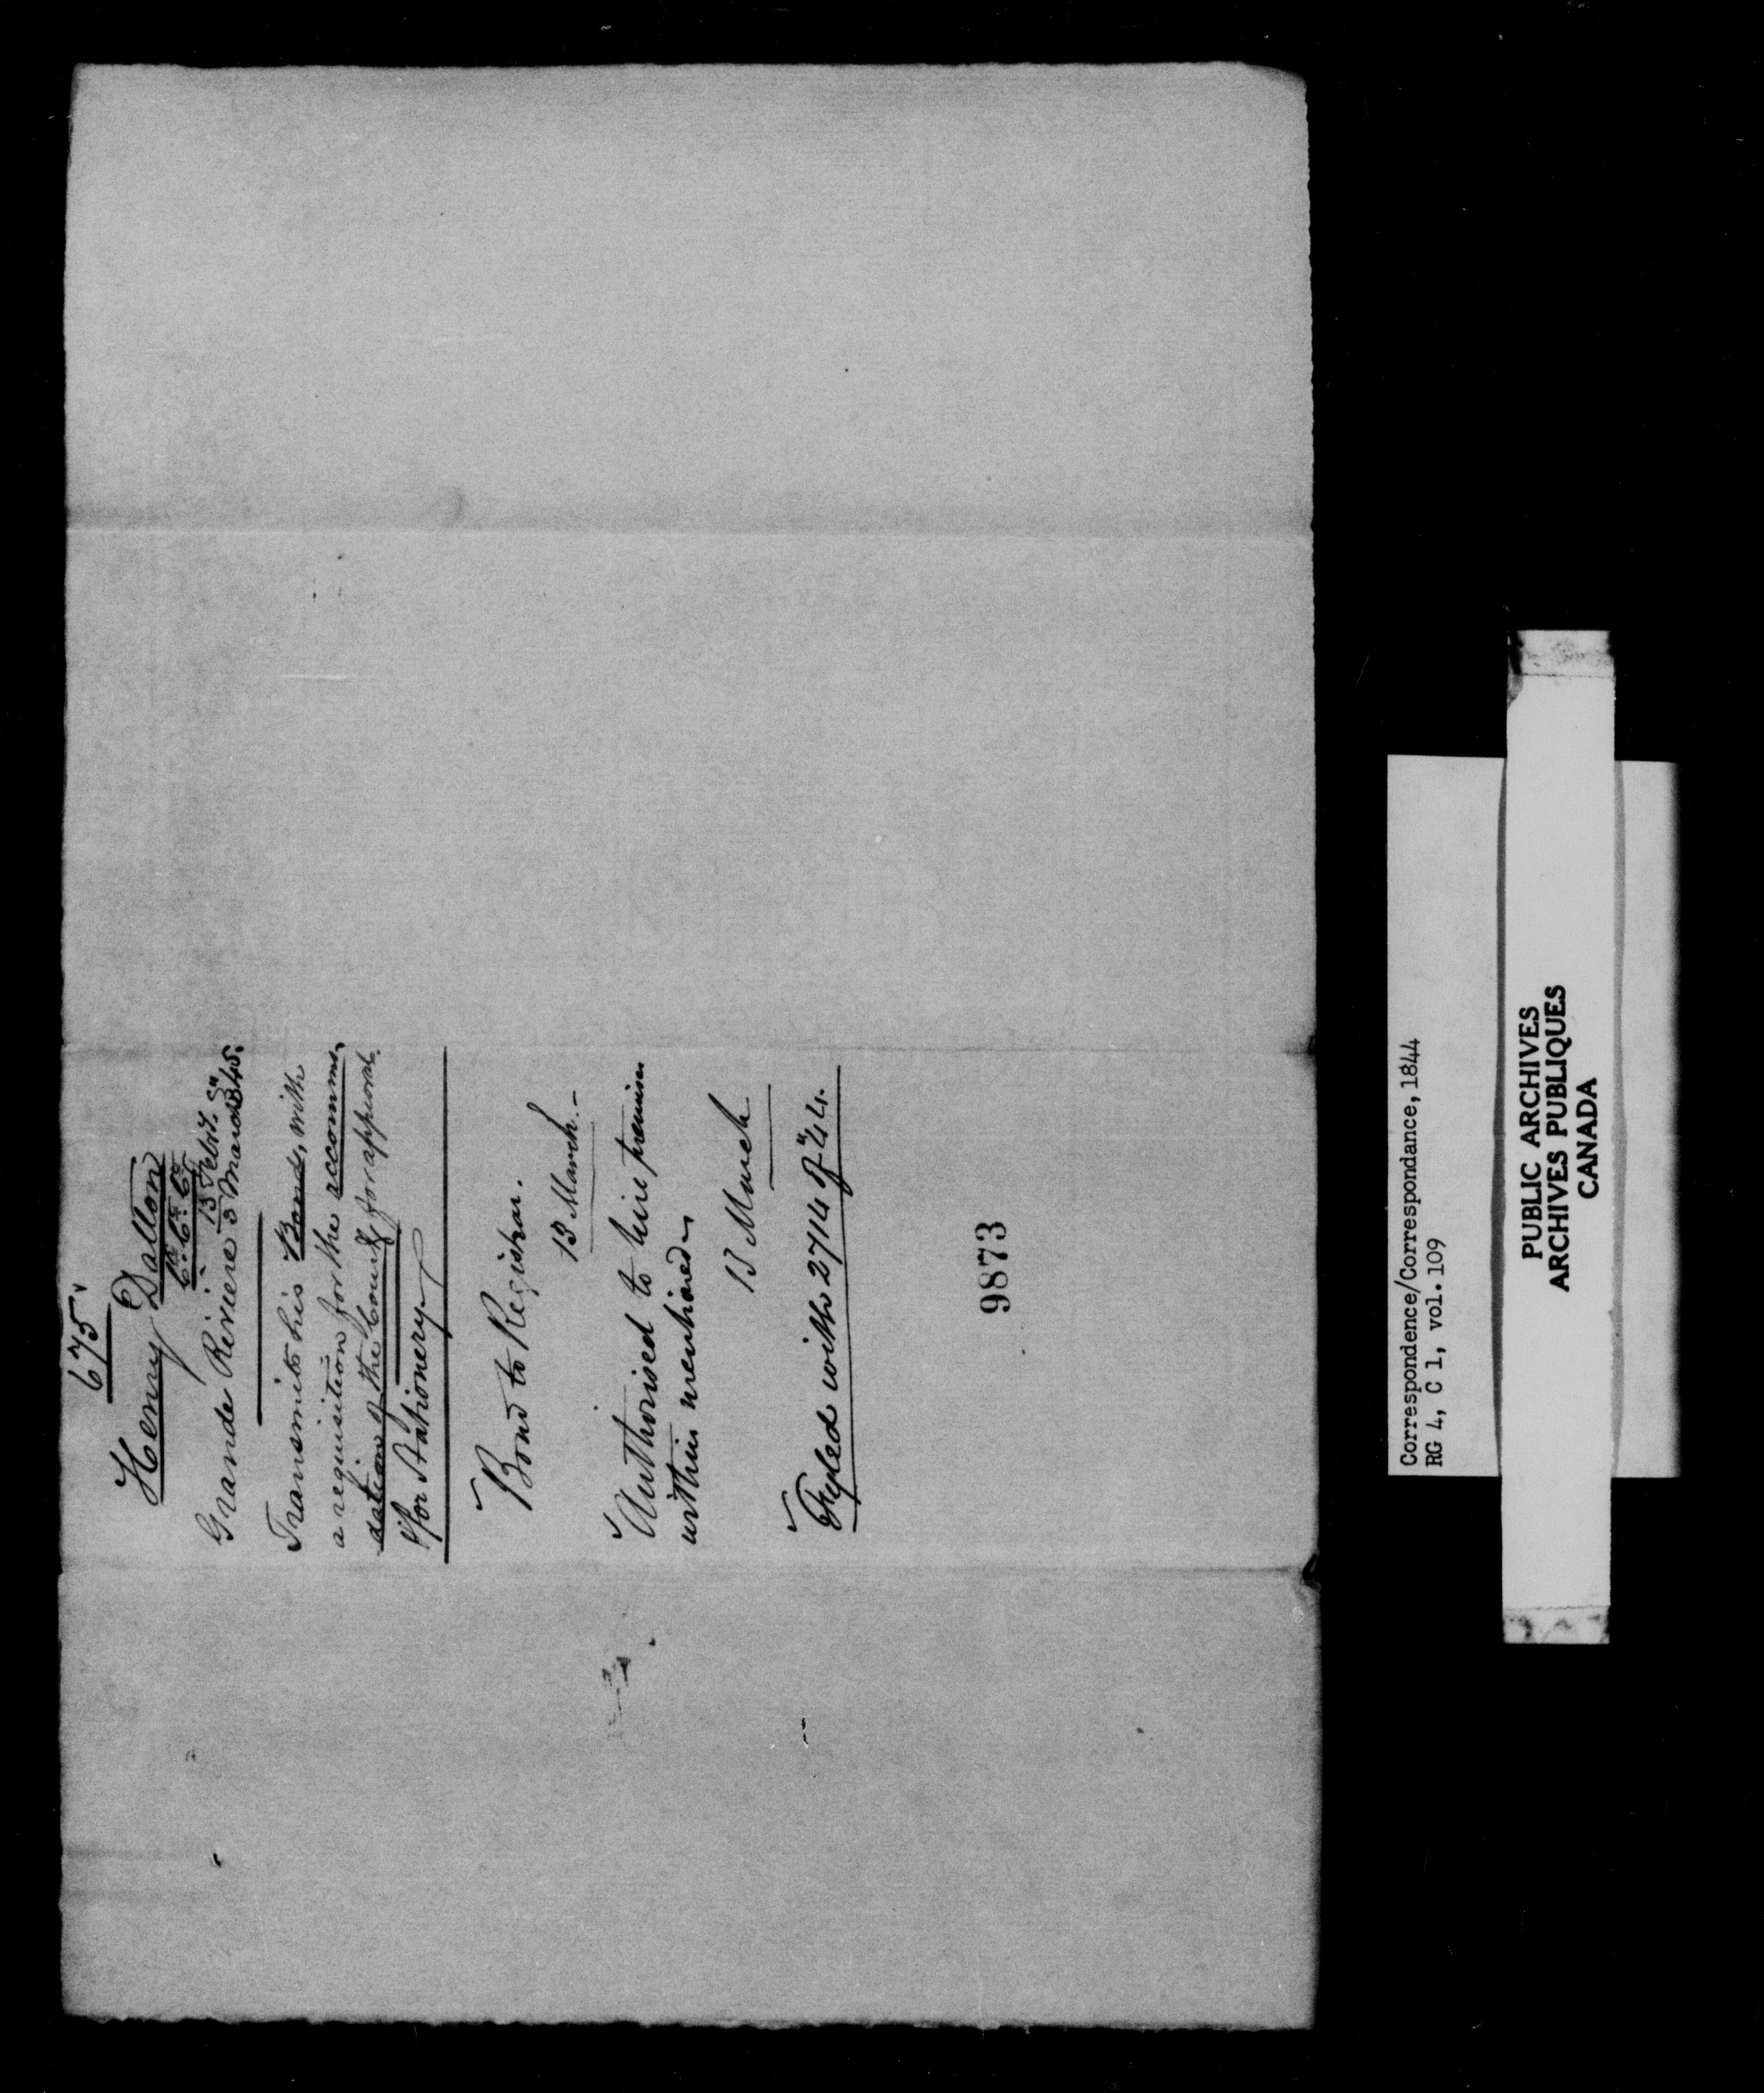 675
Henry Dalton
C. C. C.
13 Febry.
Grande Riviere 3 March 845.
Transmits his Bond, with
a requisition for the accommo-
dation of the Court, for approval.
for Stationery
Bond to Registrar.
13 March.-
Authorised to hire premises
within mentioned
13 March
Fyled with 2714 of "44.
9873
Correspondence/Correspondance, 1844
RG 4, C 1, vol. 109
PUBLIC ARCHIVES
ARCHIVES PUBLIQUES
CANADA